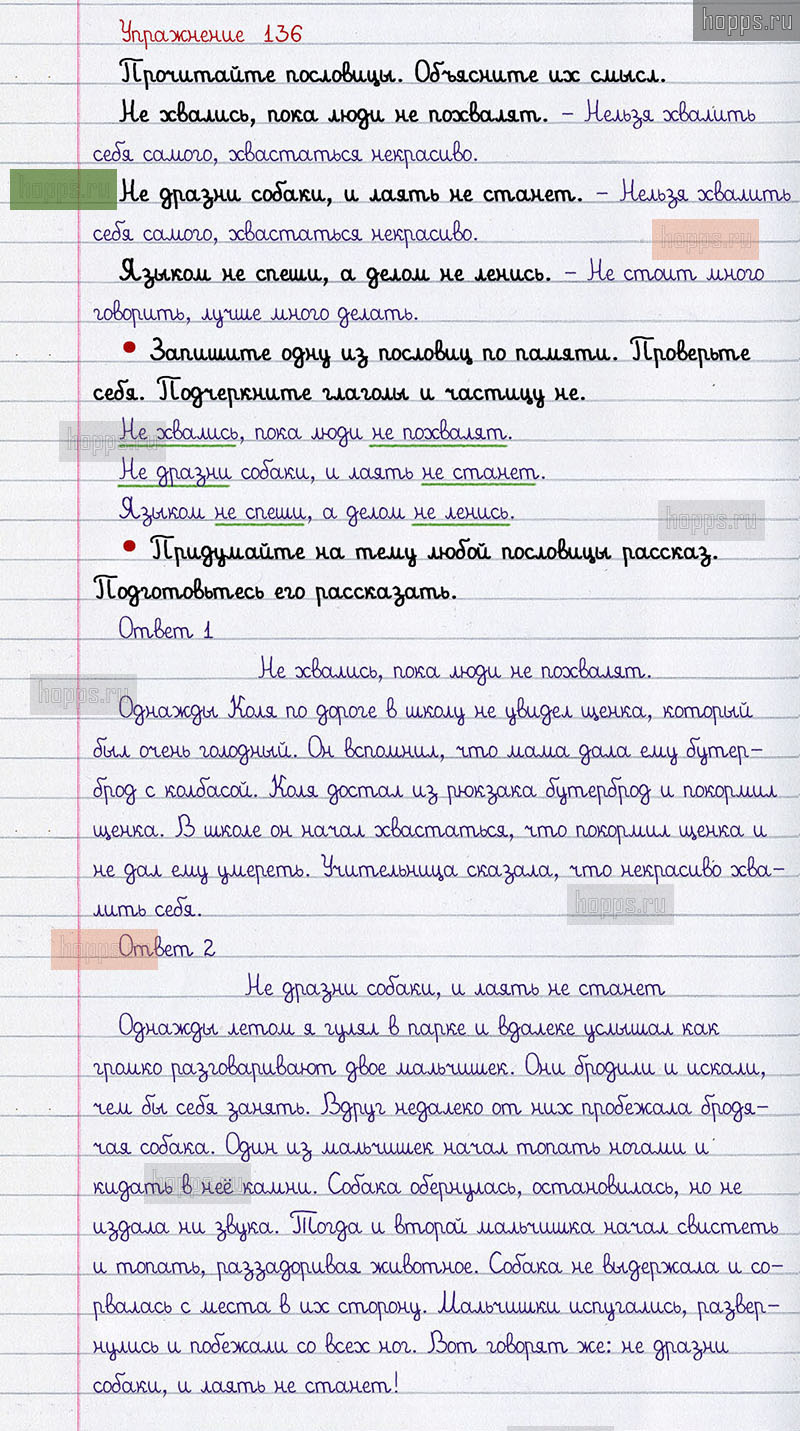 hopps.ru
Упражнение 136
Прочитайте пословицы. Объясните их смысл.
Не хвались, пока люди не похвалят. – Нельзя хвалить
себя самого, хвастаться некрасиво.
hopps.ru
Не дразни собаки, и лаять не станет. – Нельзя хвалить
себя самого, хвастаться некрасиво.
hopps.ru
Языком не спеши, а делом не ленись. – Не стоит много
говорить, лучше много делать.
• Запишите одну из пословиц по памяти. Проверьте
себя. Подчеркните глаголы и частицу не.
hopps.ru
Не хвались, пока люди не похвалят.
Не дразни собаки, и лаять не станет.
Языком не спеши, а делом не ленись.
hopps.ru
• Придумайте на тему любой пословицы рассказ.
Подготовьтесь его рассказать.
Ответ 1
Не хвались, пока люди не похвалят.
hopps.ru
Однажды Коля по дороге в школу не увидел щенка, который
был очень голодный. Он вспомнил, что мама дала ему бутер-
брод с колбасой. Коля достал из рюкзака бутерброд и покормил
щенка. В школе он начал хвастаться, что покормил щенка и
не дал ему умереть. Учительница сказала, что некрасиво хва-
лить себя.
hopps.ru
hopps.ru
Ответ 2
Не дразни собаки, и лаять не станет
Однажды летом я гулял в парке и вдалеке услышал как
громко разговаривают двое мальчишек. Они бродили и искали,
чем бы себя занять. Вдруг недалеко от них пробежала бродя-
чая собака. Один из мальчишек начал топать ногами и
hopps.ru
кидать в неё камни. Собака обернулась, остановилась, но не
издала ни звука. Тогда и второй мальчишка начал свистеть
и топать, раззадоривая животное. Собака не выдержала и со-
рвалась с места в их сторону. Мальчишки испугались, развер-
нулись и побежали со всех ног. Вот говорят же: не дразни
собаки, и лаять не станет!